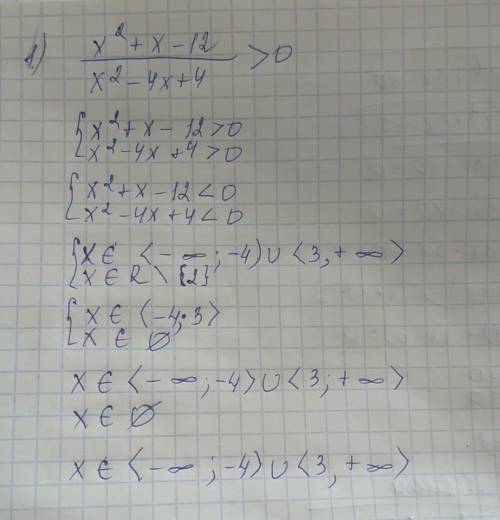 1.) x² + x - 12 / x² - 4x + 4 > 0
{ x² + x - 12 > 0
x² - 4x + 4 > 0
{ x² + x - 12 < 0
x² - 4x + 4 < 0
{ x ∈ ⟨-∞; -4) ∪ ⟨3, +∞⟩
x ∈ R \ {2}
{ x ∈ ⟨-4; 3⟩
x ∈ ∅
x ∈ ⟨-∞; -4⟩ ∪ ⟨3; +∞⟩
x ∈ ∅
x ∈ ⟨-∞; -4) ∪ ⟨3; +∞⟩